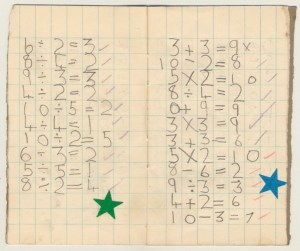 6 ÷ 2 = 3
8 ÷ 2 = 4
9 ÷ 3 = 3
4 ÷ 2 = 2
10 ÷ 5 = 2
10 ÷ 2 = 5
6 ÷ 3 = 2
5 ÷ 5 = 1
8 ÷ 2 = 4
3 + 3 = 9 x
10 - 2 = 8
5 × 2 = 10
8 ÷ 4 = 2
0 + 9 = 9
3 × 3 = 9
3 + 3 = 6
5 × 2 = 10
8 - 6 = 2
9 ÷ 3 = 3
4 + 2 = 6
10 - 3 = 7